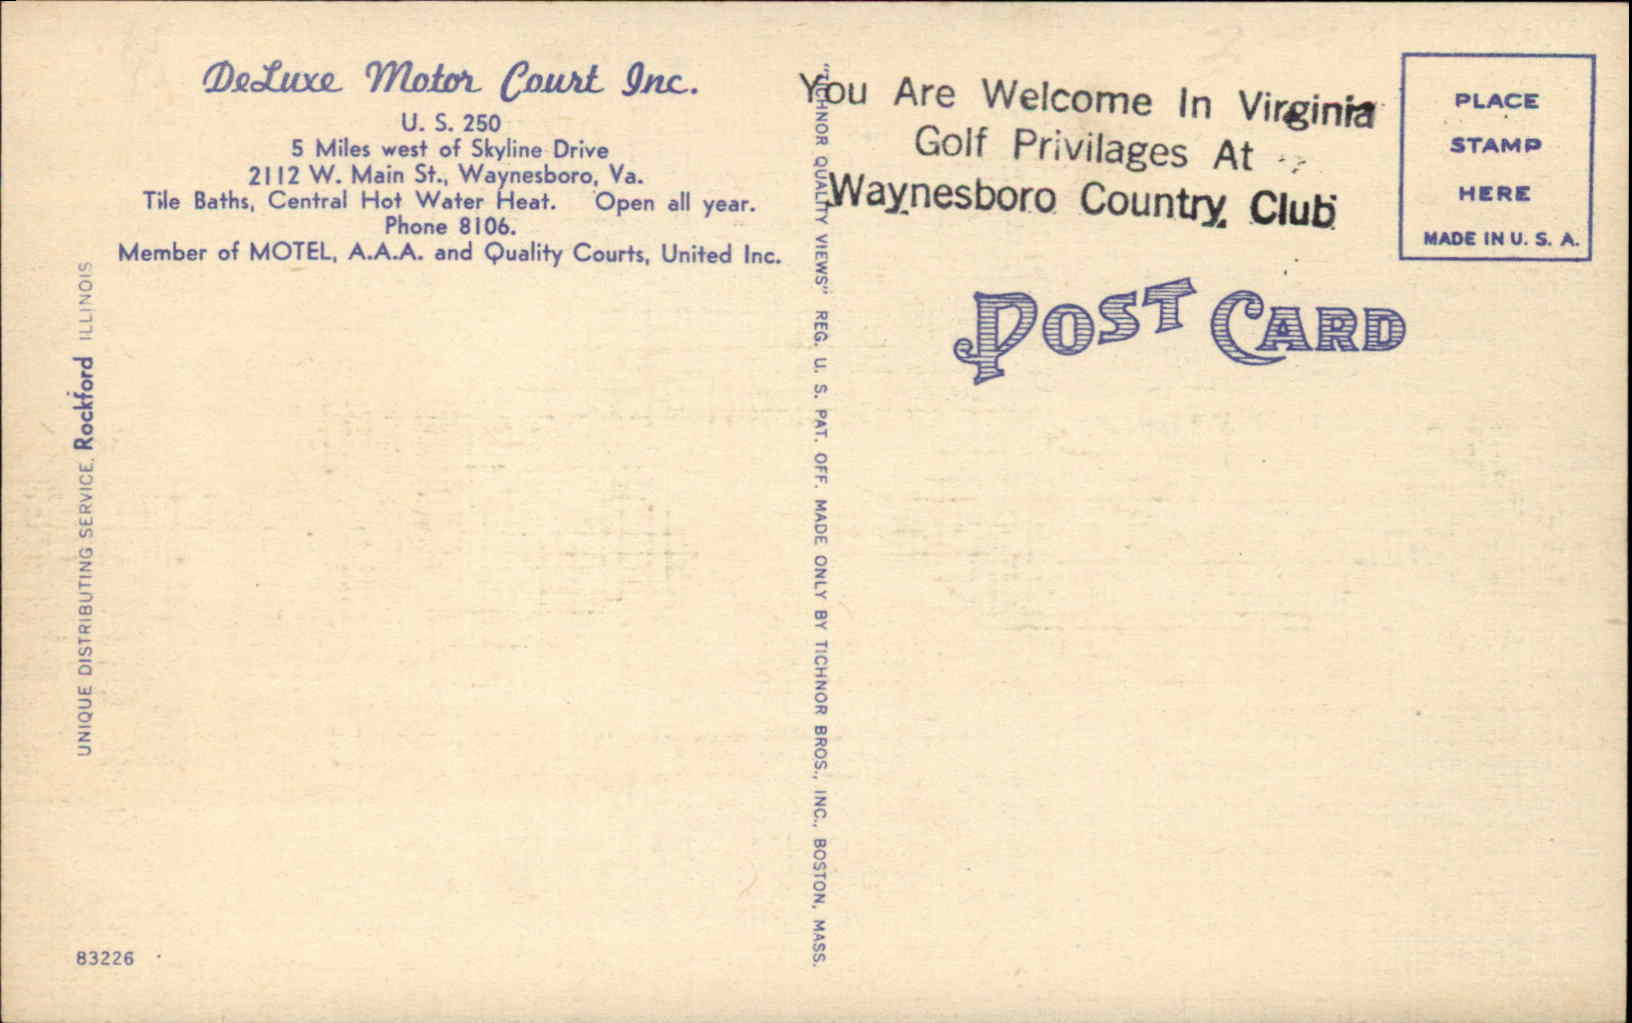 DeLuxe Motor Court Inc.
U. S. 250
5 Miles west of Skyline Drive
2112 W. Main St., Waynesboro, Va.
Tile Baths, Central Hot Water Heat. Open all year.
Phone 8106.
Member of MOTEL, A.A.A. and Quality Courts, United Inc.
UNIQUE DISTRIBUTING SERVICE, Rockford ILLINOIS
83226
"TICHNOR QUALITY VIEWS" REG. U. S. PAT. OFF. MADE ONLY BY TICHNOR BROS., INC., BOSTON, MASS.
You Are Welcome In Virginia
Golf Privilages At
Waynesboro Country Club
PLACE
STAMP
HERE
MADE IN U. S. A.
POST CARD